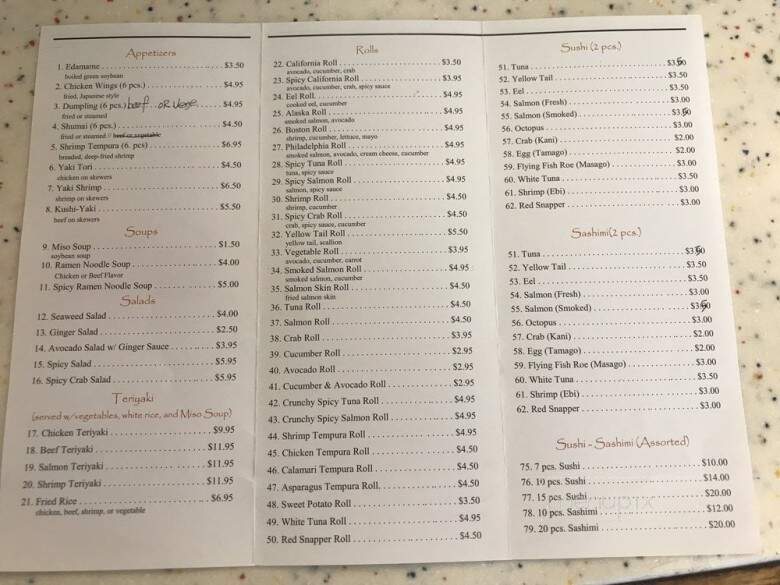 Appetizers
1. Edamame $3.50
boiled green soybean
2. Chicken Wings (6 pcs.) $4.95
fried, Japanese style
3. Dumpling (6 pcs.) beef OR Vege $4.95
fried or steamed
4. Shumai (6 pcs.) $4.50
fried or steamed // beef or vegetable
5. Shrimp Tempura (6. pcs) $6.95
breaded, deep-fried shrimp
6. Yaki Tori $4.50
chicken on skewers
7. Yaki Shrimp $6.50
shrimp on skewers
8. Kushi-Yaki $5.50
beef on skewers
Soups
9. Miso Soup $1.50
soybean soup
10. Ramen Noodle Soup $4.00
Chicken or Beef Flavor
11. Spicy Ramen Noodle Soup $5.00
Salads
12. Seaweed Salad $4.00
13. Ginger Salad $2.50
14. Avocado Salad w/ Ginger Sauce $3.95
15. Spicy Salad $5.95
16. Spicy Crab Salad $5.95
Teriyaki
(served w/vegetables, white rice, and Miso Soup)
17. Chicken Teriyaki $9.95
18. Beef Teriyaki $11.95
19. Salmon Teriyaki $11.95
20. Shrimp Teriyaki $11.95
21. Fried Rice $6.95
chicken, beef, shrimp, or vegetable
Rolls
22. California Roll $3.50
avocado, cucumber, crab
23. Spicy California Roll $3.95
avocado, cucumber, crab, spicy sauce
24. Eel Roll $4.95
cooked eel, cucumber
25. Alaska Roll $4.95
smoked salmon, avocado
26. Boston Roll $4.95
shrimp, cucumber, lettuce, mayo
27. Philadelphia Roll $4.95
smoked salmon, avocado, cream cheese, cucumber
28. Spicy Tuna Roll $4.95
tuna, spicy sauce
29. Spicy Salmon Roll $4.95
salmon, spicy sauce
30. Shrimp Roll $4.50
shrimp, cucumber
31. Spicy Crab Roll $4.50
crab, spicy sauce, cucumber
32. Yellow Tail Roll $5.50
yellow tail, scallion
33. Vegetable Roll $3.95
avocado, cucumber, carrot
34. Smoked Salmon Roll $4.95
smoked salmon, cucumber
35. Salmon Skin Roll $4.50
fried salmon skin
36. Tuna Roll $4.50
37. Salmon Roll $4.50
38. Crab Roll $3.95
39. Cucumber Roll $2.95
40. Avocado Roll $2.95
41. Cucumber & Avocado Roll $2.95
42. Crunchy Spicy Tuna Roll $4.95
43. Crunchy Spicy Salmon Roll $4.95
44. Shrimp Tempura Roll $4.95
45. Chicken Tempura Roll $4.50
46. Calamari Tempura Roll $4.50
47. Asparagus Tempura Roll $4.50
48. Sweet Potato Roll $3.50
49. White Tuna Roll $4.95
50. Red Snapper Roll $4.50
Sushi (2 pcs.)
51. Tuna $3.50
52. Yellow Tail $3.50
53. Eel $3.50
54. Salmon (Fresh) $3.00
55. Salmon (Smoked) $3.50
56. Octopus $3.00
57. Crab (Kani) $2.00
58. Egg (Tamago) $2.00
59. Flying Fish Roe (Masago) $3.00
60. White Tuna $3.50
61. Shrimp (Ebi) $3.00
62. Red Snapper $3.00
Sashimi(2 pcs.)
51. Tuna $3.50
52. Yellow Tail $3.50
53. Eel $3.50
54. Salmon (Fresh) $3.00
55. Salmon (Smoked) $3.50
56. Octopus $3.00
57. Crab (Kani) $2.00
58. Egg (Tamago) $2.00
59. Flying Fish Roe (Masago) $3.00
60. White Tuna $3.50
61. Shrimp (Ebi) $3.00
62. Red Snapper $3.00
Sushi - Sashimi (Assorted)
75. 7 pcs. Sushi $10.00
76. 10 pcs. Sushi $14.00
77. 15 pcs. Sushi $20.00
78. 10 pcs. Sashimi $12.00
79. 20 pcs. Sashimi $20.00